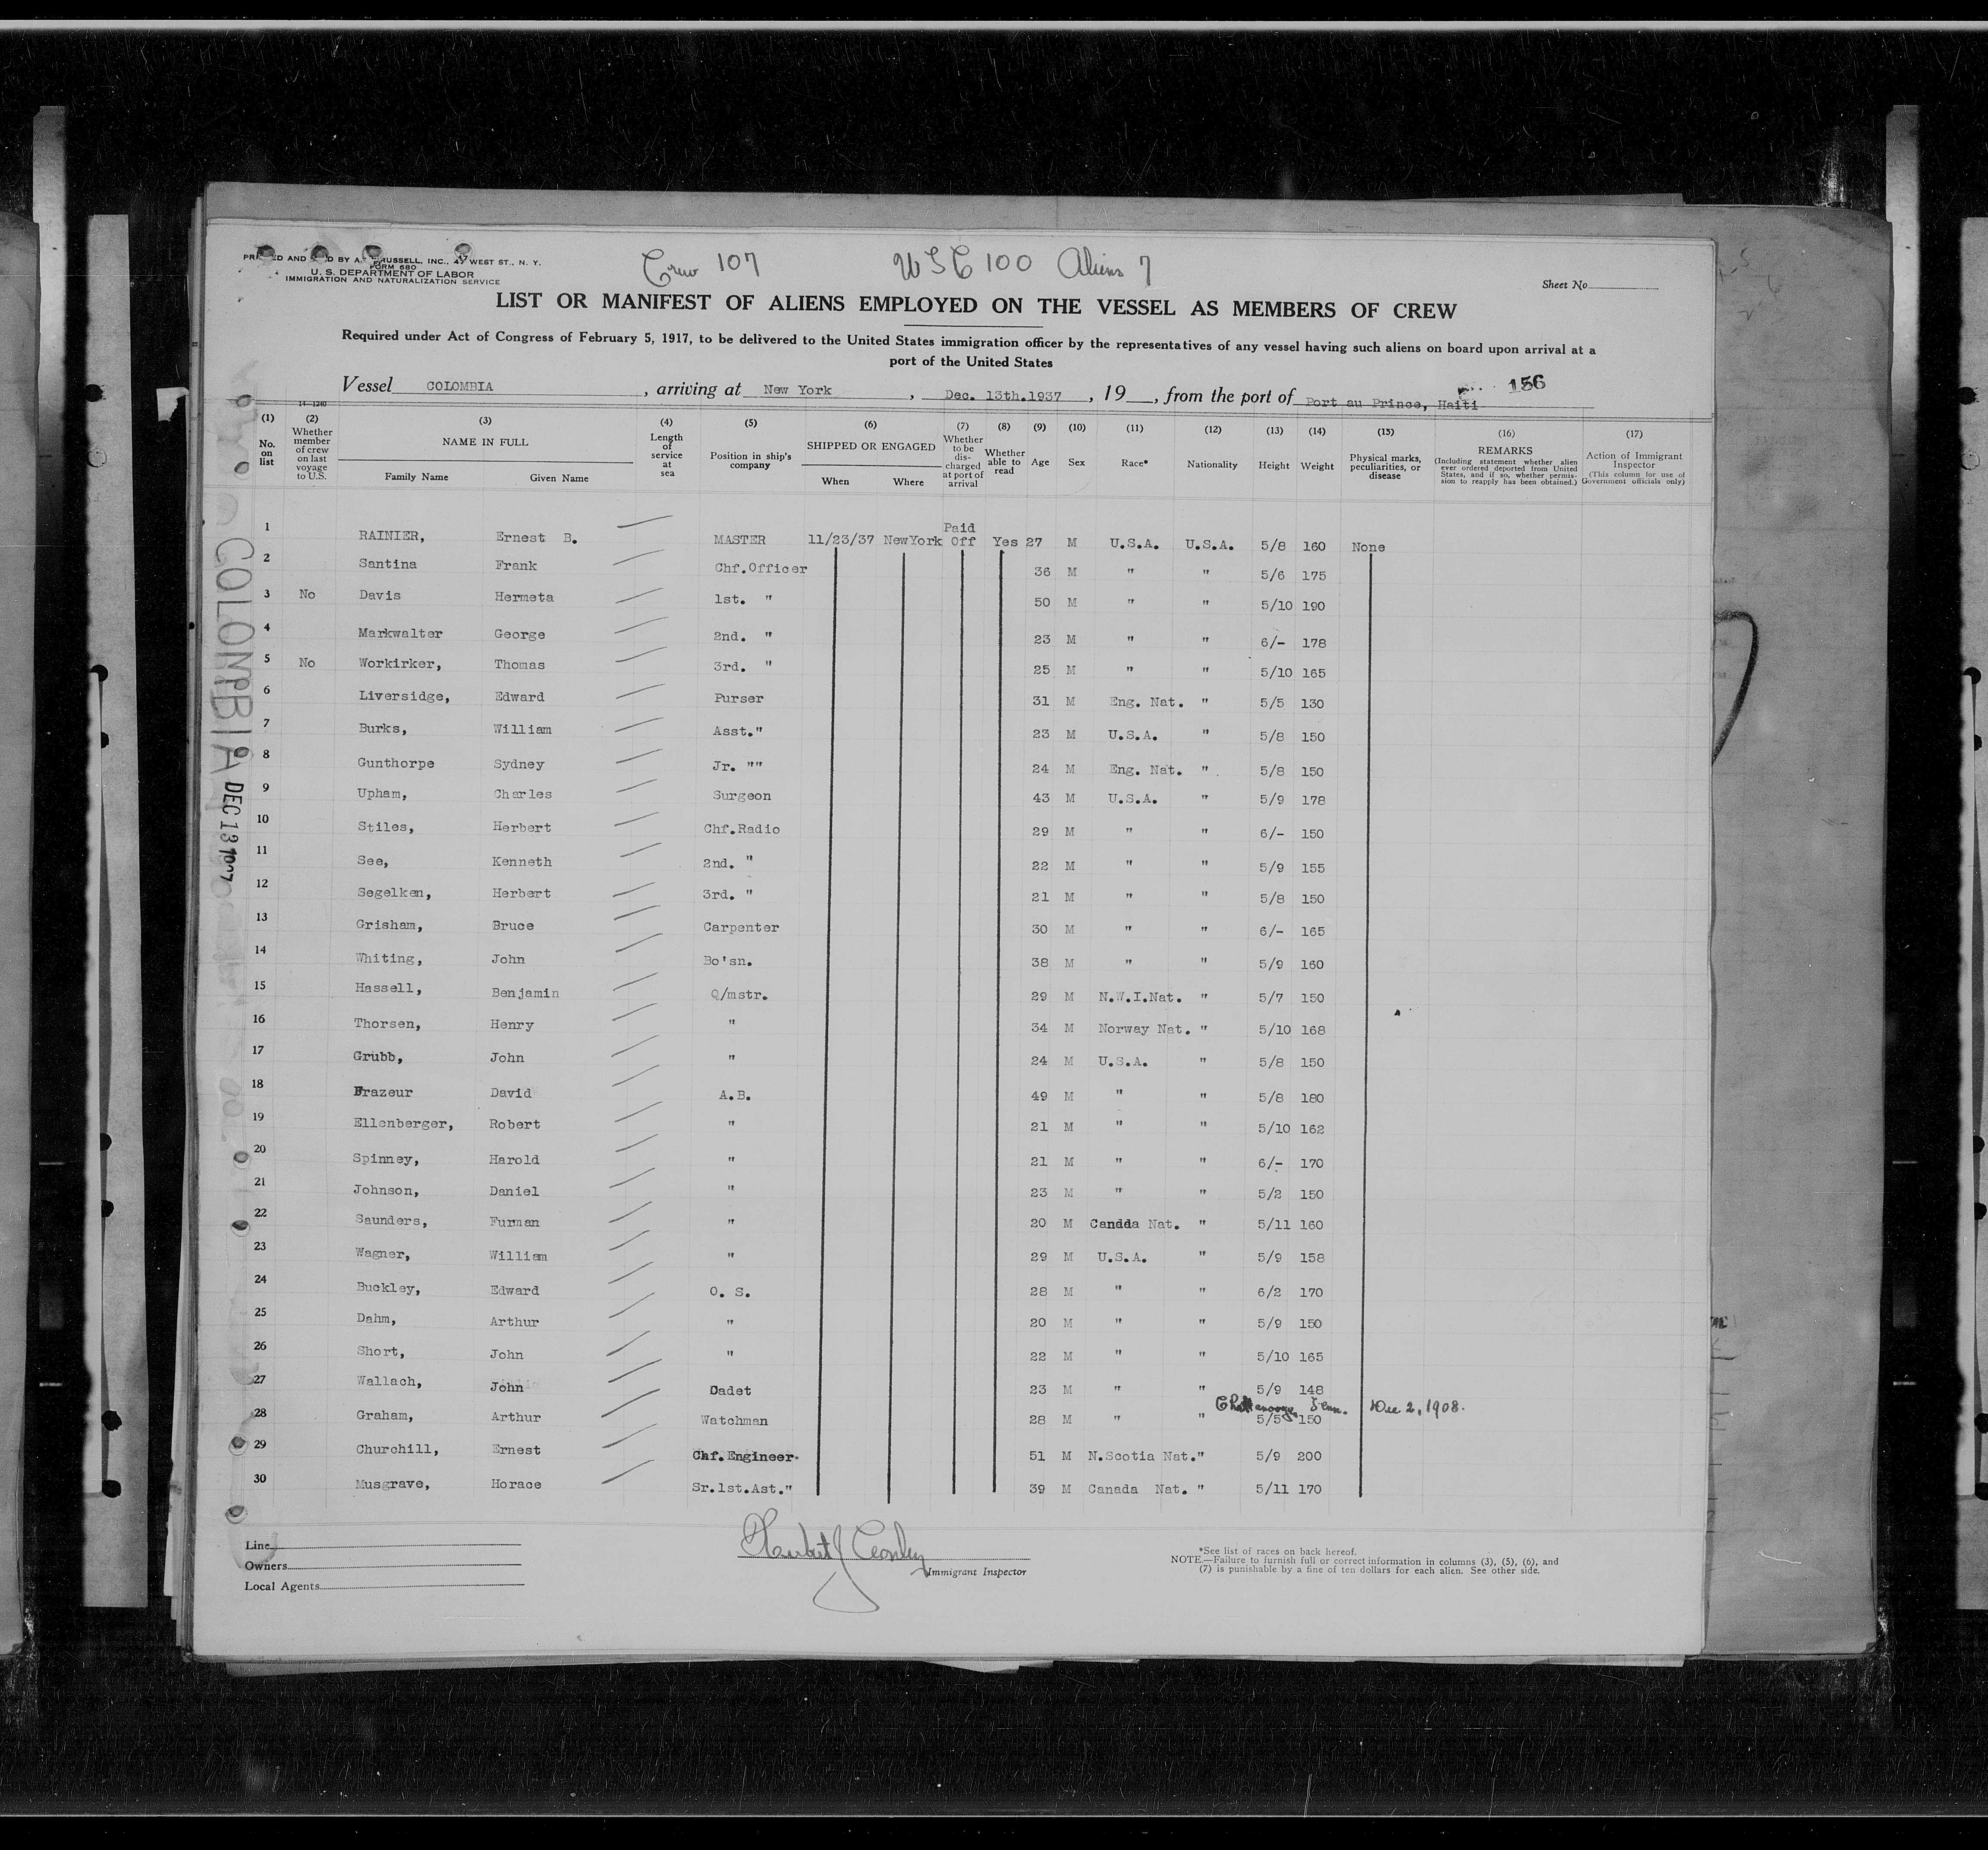 Crew 107 USC 100 Aliens 7
WEST ST., N. Y.
FORM 680
U. S. DEPARTMENT OF LABOR
IMMIGRATION AND NATURALIZATION SERVICE
Sheet No.
LIST OR MANIFEST OF ALIENS EMPLOYED ON THE VESSEL AS MEMBERS OF CREW
Required under Act of Congress of February 5, 1917, to be delivered to the United States immigration officer by the representatives of any vessel having such aliens on board upon arrival at a
port of the United States
156
Vessel COLOMBIA , arriving at New York , Dec. 13th.1937 , 19 , from the port of Port au Prince, Haiti
14-1240
(1) No. on list
(2) Whether member of crew on last voyage to U.S.
(3) NAME IN FULL Family Name Given Name
(4) Length of service at sea
(5) Position in ship's company
(6) SHIPPED OR ENGAGED When Where
(7) Whether to be discharged at port of arrival
(8) Whether able to read
(9) Age
(10) Sex
(11) Race*
(12) Nationality
(13) Height
(14) Weight
(15) Physical marks, peculiarities, or disease
(16) REMARKS (Including statement whether alien ever ordered deported from United States, and if so, whether permission to reapply has been obtained.)
(17) Action of Immigrant Inspector (This column for use of Government officials only)
1 RAINIER, Ernest B. MASTER 11/23/37 NewYork Paid Off Yes 27 M U.S.A. U.S.A. 5/8 160 None
2 Santina Frank Chf.Officer 36 M " " 5/6 175
3 No Davis Hermeta 1st. " 50 M " " 5/10 190
4 Markwalter George 2nd. " 23 M " " 6/- 178
5 No Workirker, Thomas 3rd. " 25 M " " 5/10 165
6 Liversidge, Edward Purser 31 M Eng. Nat. " 5/5 130
7 Burks, William Asst." 23 M U.S.A. " 5/8 150
8 Gunthorpe Sydney Jr. "" 24 M Eng. Nat. " 5/8 150
9 Upham, Charles Surgeon 43 M U.S.A. " 5/9 178
10 Stiles, Herbert Chf.Radio 29 M " " 6/- 150
11 See, Kenneth 2nd. " 22 M " " 5/9 155
12 Segelken, Herbert 3rd. " 21 M " " 5/8 150
13 Grisham, Bruce Carpenter 30 M " " 6/- 165
14 Whiting, John Bo'sn. 38 M " " 5/9 160
15 Hassell, Benjamin Q/mstr. 29 M N.W.I.Nat. " 5/7 150
16 Thorsen, Henry " 34 M Norway Nat. " 5/10 168
17 Grubb, John " 24 M U.S.A. " 5/8 150
18 Frazeur David A.B. 49 M " " 5/8 180
19 Ellenberger, Robert " 21 M " " 5/10 162
20 Spinney, Harold " 21 M " " 6/- 170
21 Johnson, Daniel " 23 M " " 5/2 150
22 Saunders, Furman " 20 M Candda Nat. " 5/11 160
23 Wagner, William " 29 M U.S.A. " 5/9 158
24 Buckley, Edward O. S. 28 M " " 6/2 170
25 Dahm, Arthur " 20 M " " 5/9 150
26 Short, John " 22 M " " 5/10 165
27 Wallach, John Cadet 23 M " " 5/9 148
Chattanooga Tenn. Dec 2, 1908.
28 Graham, Arthur Watchman 28 M " " 5/5 150
29 Churchill, Ernest Chf.Engineer. 51 M N.Scotia Nat." 5/9 200
30 Musgrave, Horace Sr.1st.Ast." 39 M Canada Nat. " 5/11 170
COLOMBIA DEC 13 1937
Line
Owners
Local Agents
Immigrant Inspector
*See list of races on back hereof.
NOTE.—Failure to furnish full or correct information in columns (3), (5), (6), and
(7) is punishable by a fine of ten dollars for each alien. See other side.